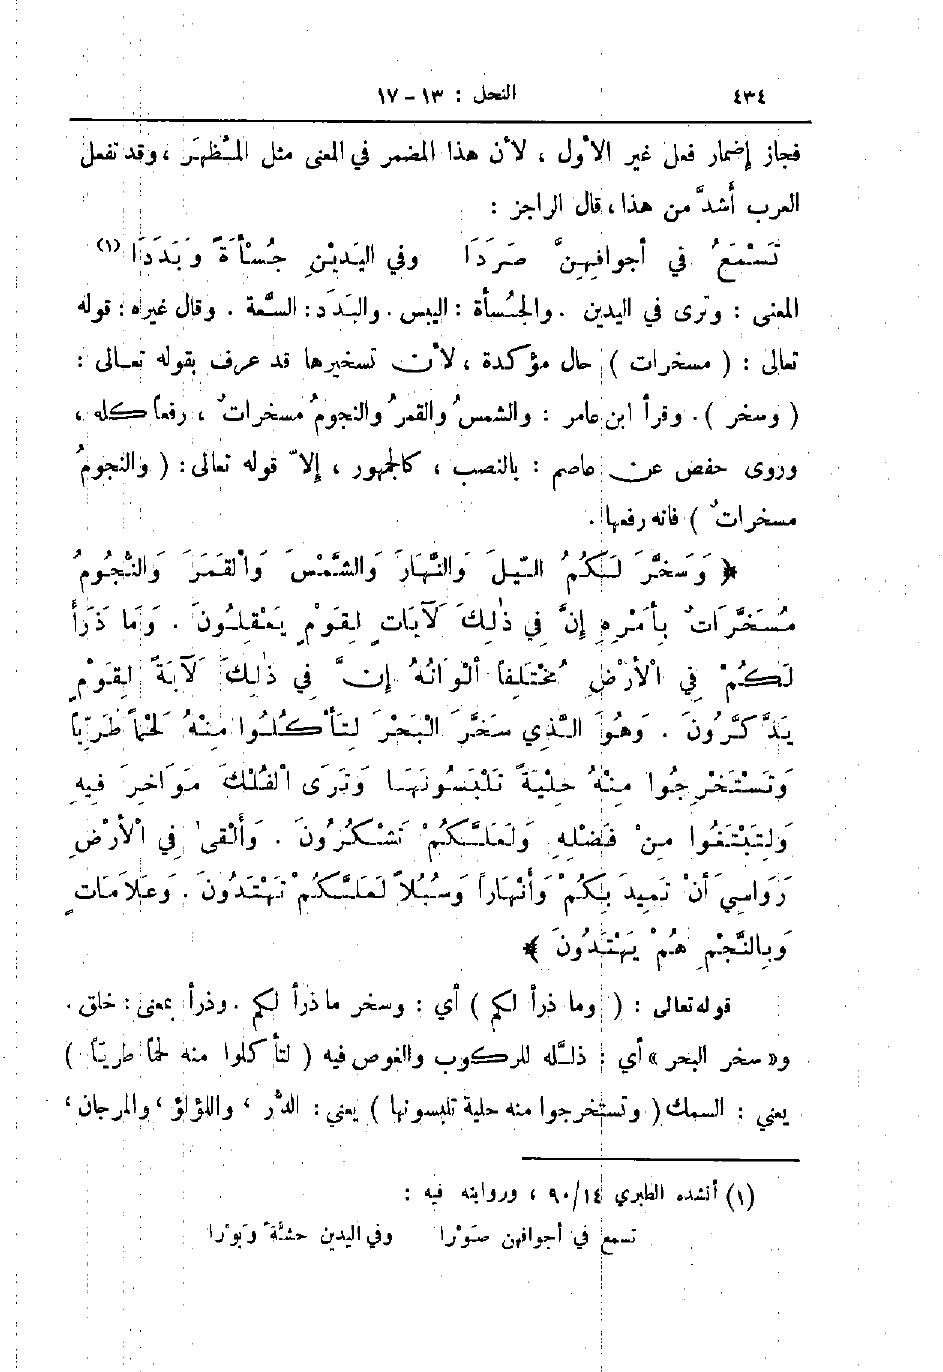 ٤٣٤ النحل : ١٣ - ١٧
فجاز إضمار فعل غير الأول ، لأن هذا المضمر في المعنى مثل المُظهَر ، وقد تفعل
العرب أشدَّ من هذا ، قال الراجز :
تَسْمَعُ في أجوافِهِنَّ صَرَدَا وفي اليَدَيْنِ جُسْأَةً وَبَدَدَا (١)
المعنى : وترى في اليدين . والجُسأة : اليبس . والبَدَد : السَّعة . وقال غيره : قوله
تعالى : ( مسخرات ) حال مؤكدة ، لأن تسخيرها قد عرف بقوله تعالى :
( وسخر ) . وقرأ ابن عامر : والشمسُ والقمرُ والنجومُ مسخراتٌ ، رفعاً كله ،
وروى حفص عن عاصم : بالنصب ، كالجمهور ، إلاّ قوله تعالى : ( والنجومُ
مسخراتٌ ) فانه رفعها .
﴿ وَسَخَّرَ لَكُمُ اللَّيْلَ وَالنَّهَارَ وَالشَّمْسَ وَالْقَمَرَ وَالنُّجُومُ
مُسَخَّرَاتٌ بِأَمْرِهِ إِنَّ فِي ذٰلِكَ لَآيَاتٍ لِقَوْمٍ يَعْقِلُونَ . وَمَا ذَرَأَ
لَكُمْ فِي الْأَرْضِ مُخْتَلِفاً أَلْوَانُهُ إِنَّ فِي ذٰلِكَ لَآيَةً لِقَوْمٍ
يَذَّكَّرُونَ . وَهُوَ الَّذِي سَخَّرَ الْبَحْرَ لِتَأْكُلُوا مِنْهُ لَحْماً طَرِيّاً
وَتَسْتَخْرِجُوا مِنْهُ حِلْيَةً تَلْبَسُونَهَا وَتَرَى الْفُلْكَ مَوَاخِرَ فِيهِ
وَلِتَبْتَغُوا مِنْ فَضْلِهِ وَلَعَلَّكُمْ تَشْكُرُونَ . وَأَلْقىٰ فِي الْأَرْضِ
رَوَاسِيَ أَنْ تَمِيدَ بِكُمْ وَأَنْهَاراً وَسُبُلاً لَعَلَّكُمْ تَهْتَدُونَ . وَعَلَامَاتٍ
وَبِالنَّجْمِ هُمْ يَهْتَدُونَ ﴾
قوله تعالى : ( وما ذرأ لكم ) أي : وسخر ما ذرأ لكم . وذرأ بمعنى : خلق .
و« سخر البحر » أي : ذلَّله للركوب والغوص فيه ( لتأكلوا منه لحماً طريّاً )
يعني : السمك ( وتستخرجوا منه حلية تلبسونها ) يعني : الدُّر ، واللؤلؤ ، والمرجان ،
(١) أنشده الطبري ٩٠/١٤ ، وروايته فيه :
تسمع في أجوافهن صَوْرا وفي اليدين حشَّةً وَبَوْرا